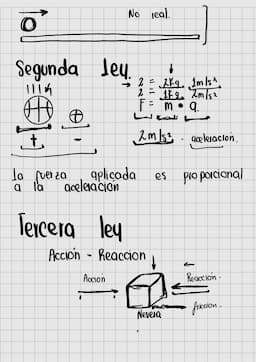 No real.
Segunda ley.
2 = 2kg 1m/s²
2 = 1kg 2m/s²
F = m • a.
+ -
2m/s² - aceleracion.
la fuerza aplicada es proporcional
a la aceleración
Tercera ley
Acción - Reaccion
Accion
Reacción.
Nevera
friccion.